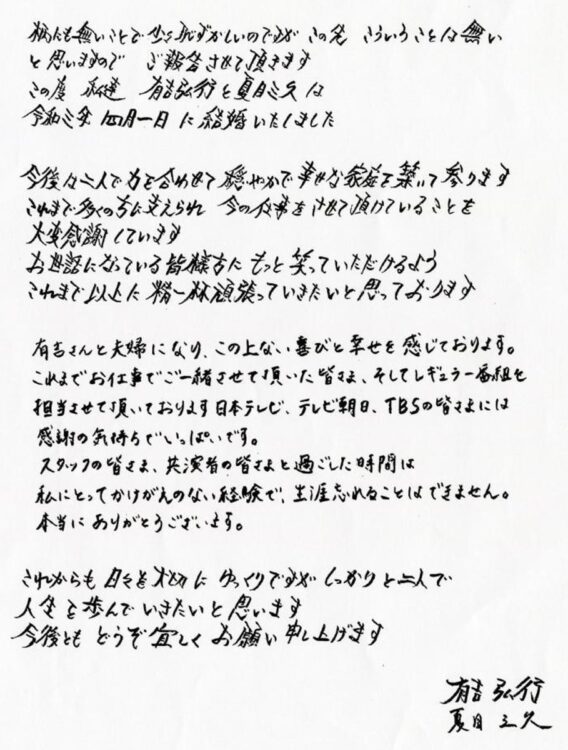 柄にも無いことで少々恥ずかしいのですが この先 こういうことは無い
と思いますので ご報告させて頂きます
この度 私達 有吉弘行と夏目三久は
令和三年 四月一日 に 結婚いたしました
今後々二人で力を合わせて 穏やかで幸せな家庭を築いて参ります
これまで多くの方に支えられ 今の仕事をさせて頂けていることを
大変感謝しています
お世話になっている皆様方に もっと笑っていただけるよう
これまで以上に 精一杯頑張っていきたいと思っております
有吉さんと夫婦になり、この上ない喜びと幸せを感じております。
これまでお仕事でご一緒させて頂いた皆さま、そしてレギュラー番組を
担当させて頂いております日本テレビ、テレビ朝日、TBSの皆さまには
感謝の気持ちでいっぱいです。
スタッフの皆さま、共演者の皆さまと過ごした時間は
私にとってかけがえのない経験で、生涯忘れることはできません。
本当にありがとうございます。
これからも 日々を大切に ゆっくりですが しっかりと二人で
人生を歩んでいきたいと思います
今後とも どうぞ宜しく お願い申し上げます
有吉 弘行
夏目 三久